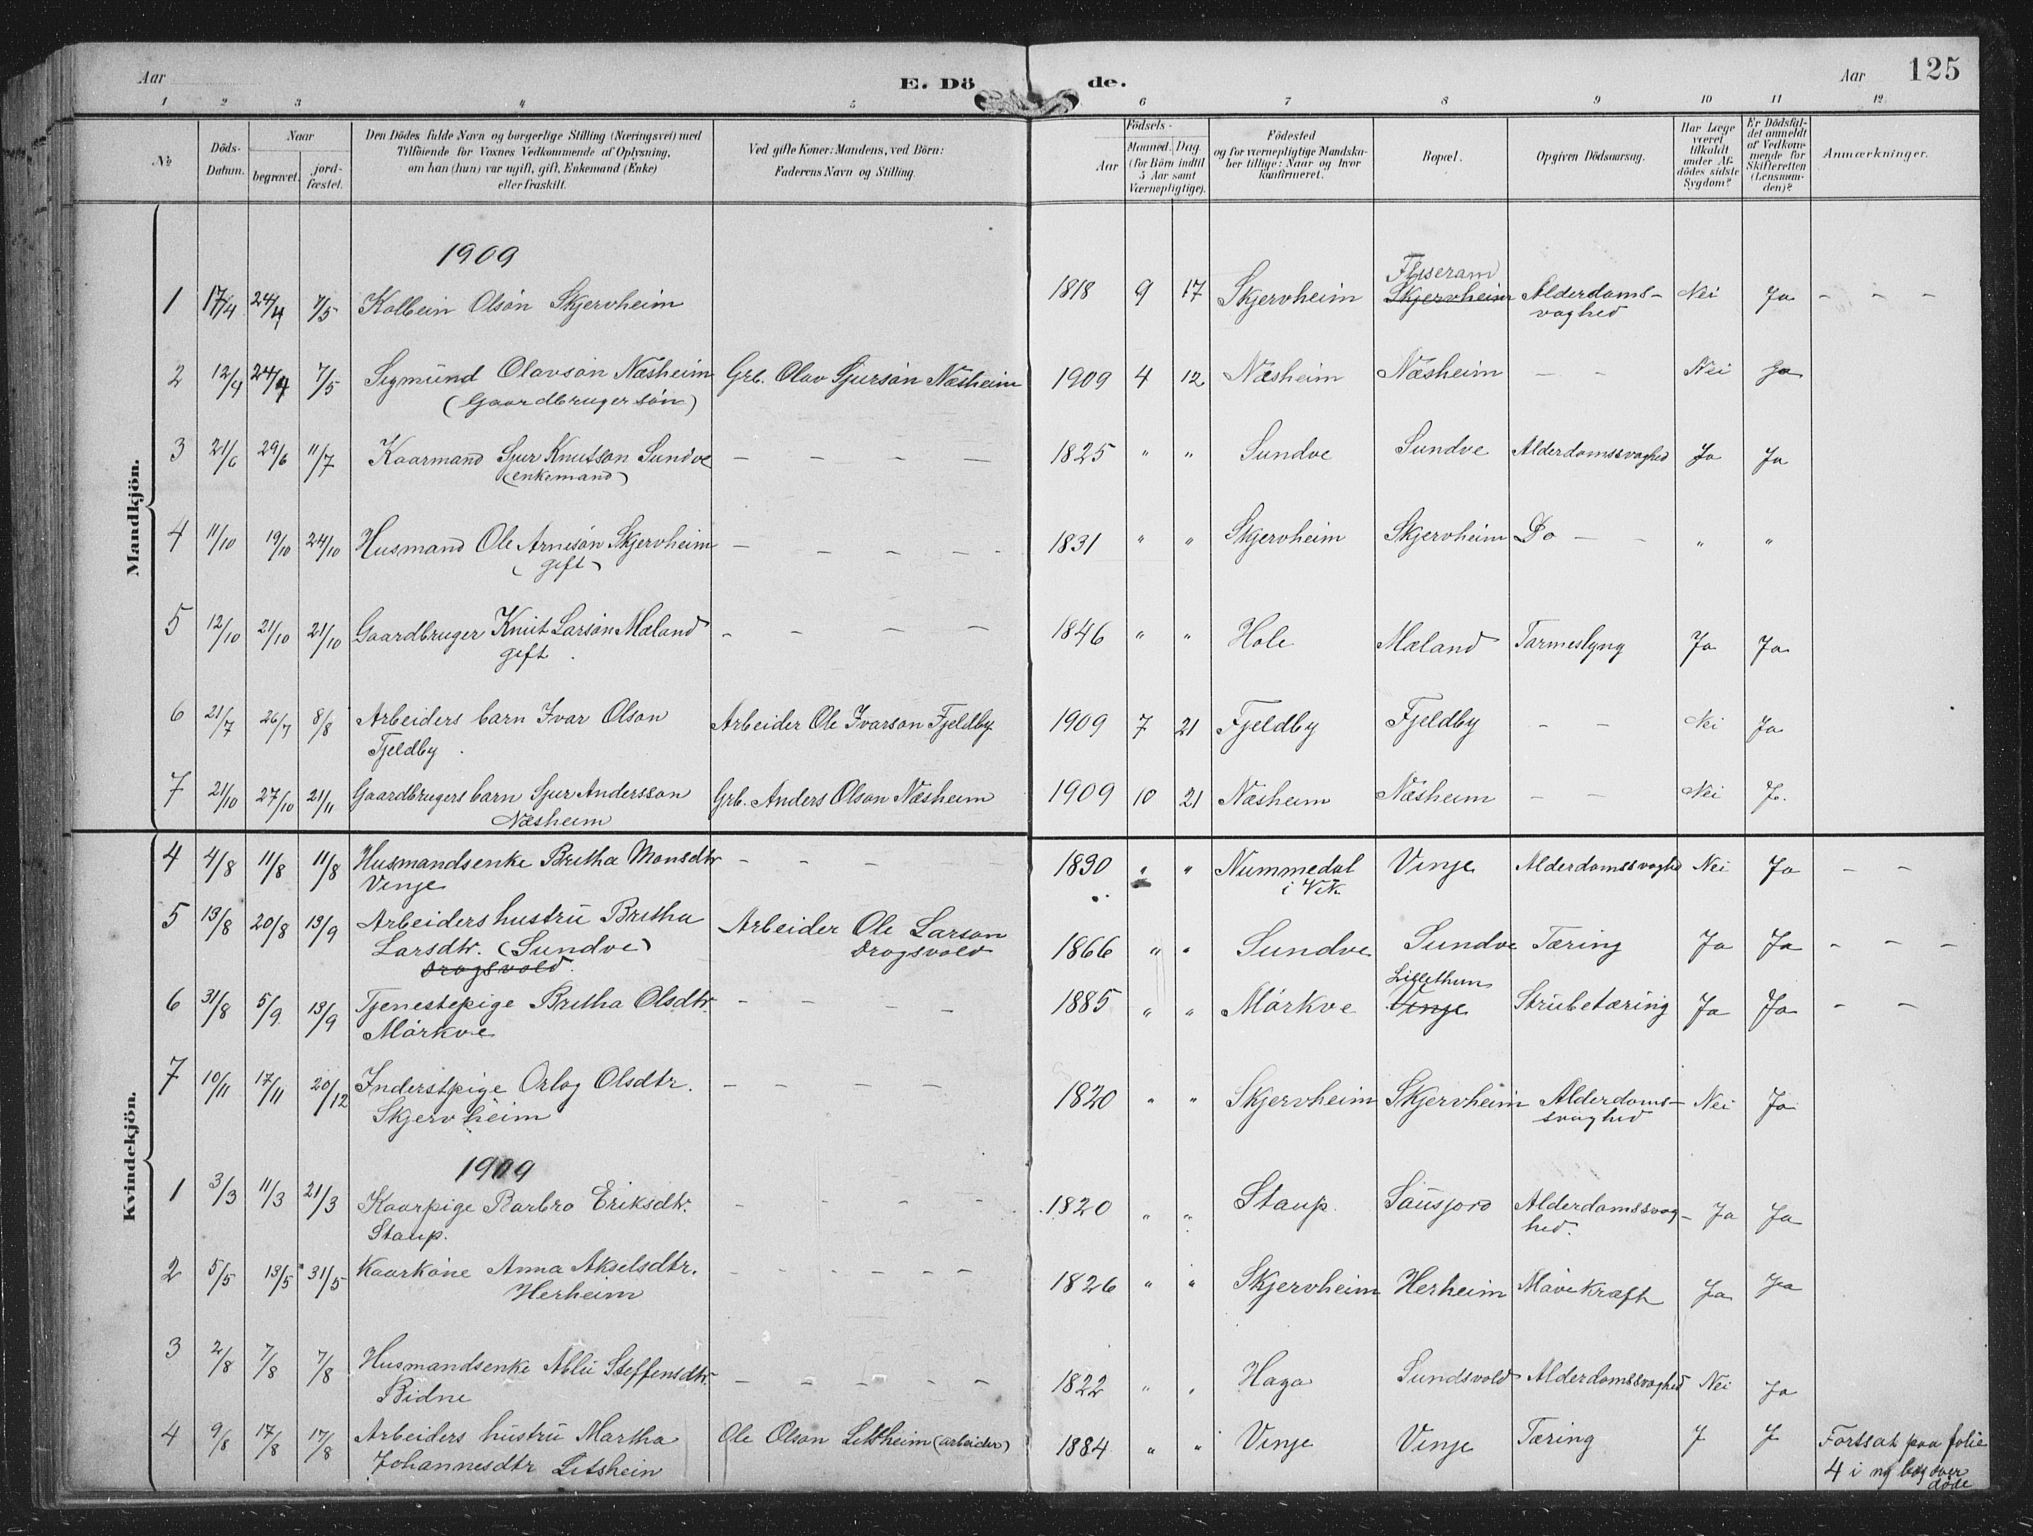 Aar
E. Dö
de.
Aar
125
1 2 3 4 5 6 7 8 9 10 11 12
№
Döds-
Datum.
Naar
begravet.
jord-
fæstet.
Den Dödes fulde Navn og borgerlige Stilling (Næringsvei) med
Tilföiende for Voxnes Vedkommende af Oplysning,
om han (hun) var ugift, gift, Enkemand (Enke)
eller fraskilt.
Ved gifte Koner: Mandens, ved Börn:
Faderens Navn og Stilling.
Födsels-
Aar
Maaned. Dag.
(for Börn indtil
5 Aar samt
Værnepligtige).
Födested
og for værnepligtige Mandska-
ber tillige: Naar og hvor
konfirmeret.
Bopæl.
Opgiven Dödsaarsag.
Har Læge
været
tilkaldt
under Af-
dödes sidste
Sygdom?
Er Dödsfal-
det anmeldt
af Vedkom-
mende for
Skifteretten
(Lensman-
den)?
Anmærkninger.
Mandkjön.
1909
1 17/4 24/4 7/5 Kolbein Olsön Skjervheim 1818 9 17 Skjervheim Skjervheim Alderdoms- Nei Ja – – –
svaghed
2 12/4 24/4 7/5 Sigmünd Olavsön Næsheim Grb. Olav Sjursön Næsheim 1909 4 12 Næsheim Næsheim – – Nei Ja
(Gaardbruger sön)
3 21/6 29/6 11/7 Kaarmand Sjur Knutson Sundve – – – – 1825 " " Sundve Sundve Alderdomssvaghed Ja Ja
(enkemand)
4 11/10 19/10 24/10 Husmand Ole Arnesön Skjervheim – – – – 1831 " " Skjervheim Skjervheim Do – – " "
(gift)
5 12/10 21/10 21/10 Gaardbruger Knut Larsön Mæland – – – – 1846 " " Hole Mæland Tarmeslyng Ja Ja
gift.
6 21/7 26/7 8/8 Arbeiders barn Ivar Olson Arbeider Ole Ivarson Fjeldby 1909 7 21 Fjeldby Fjeldby – – Nei Ja
Fjeldby.
7 21/10 27/10 21/11 Gaardbrugers barn Sjur Andersson Grb. Anders Olson Næsheim 1909 10 21 Næsheim Næsheim – – Nei J.
Næsheim
Kvindekjön.
4 4/8 11/8 11/8 Husmandsenke Britha Monsdtr – – – 1830 " " Nummedal Vinje Alderdomssvaghed Nei Ja – –
Vinje i Vik.
5 13/8 20/8 13/9 Arbeiders hustrü Britha Arbeider Ole Larson 1866 " " Sundve Sundve Tæring Ja Ja – – –
Larsdtr. (Sundve) Drogsvold
Drogsvold.
Lillethun
6 31/8 5/9 13/9 Tjenestepige Britha Olsdtr. – – – – 1885 " " Mörkve Vinje Strübetæring Ja Ja – –
Mörkve
7 10/11 17/11 20/12 Inderstpige Orlog Olsdtr. – – – – 1820 " " Skjervheim Skjervheim Alderdoms- Nei Ja
Skjervheim svaghed
1909
1 3/3 11/3 21/3 Kaarpige Barbro Eriksdtr. – – – – 1820 " " Staup. Saüsjord Alderdomssvag- Ja Ja
Staup. hed.
2 5/5 13/5 31/5 Kaarköne Anna Akselsdtr. – – – – – 1826 " " Skjervheim Herheim Mavekræft Ja Ja
Herheim
3 2/8 7/8 7/8 Husmandsenke Ablü Steffensdtr – – – – – 1822 " " Haga Sundsvold Alderdomssvaghed Nei Ja
Bidne
4 9/8 17/8 17/8 Arbeiders hüstrü Martha Ole Olson Litsheim (arbeider) 1884 " " Vinje Vinje Tæring J J Fortsat paa folie
Johannesdtr Litshein 4 i ny bog over
døde